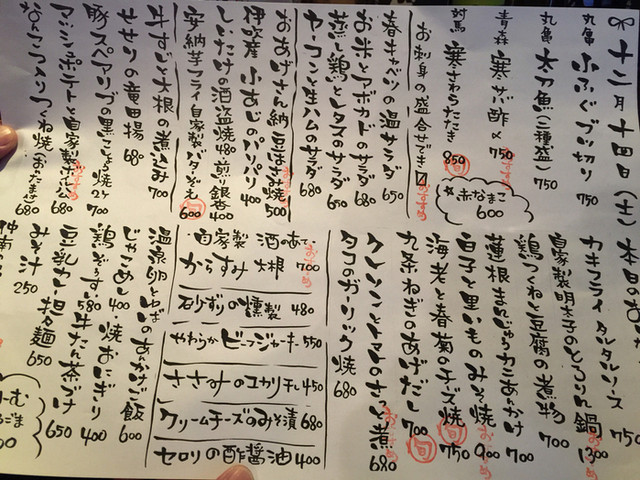 十二月十四日(土) 本日のお
丸亀 小ふぐブツ切り 750
丸亀 太刀魚(二種盛) 750
青森 寒サバ酢〆 750 おすすめ
対馬 寒さわらたたき 850 旬
☆赤なまこ 600
お刺身の盛合でき〼 おすすめ
春キャベツの温サラダ 650
お米とアボカドのサラダ 680
蒸し鶏とレタスのサラダ 650
ヤーコンと生ハムのサラダ 680
おあげさん納豆はさみ焼 500 おすすめ
伊吹産 小あじのパリパリ 400
しいたけの酒盗焼 480 煎り銀杏 400
安納芋フライ自家製バターそえ 600 旬
牛すじと大根の煮込み 700
せせりの竜田揚 680
豚スペアリブの黒こしょう焼 2ケ 700
680 おすすめ
つくね焼 680
カキフライ タルタルソース 750
自家製明太子のとろりん鍋 1300
鶏つくねと豆腐の煮物 700
蓮根まんじゅうカニあんかけ 700
白子と里いものみそ焼 900 おすすめ
海老と春菊のチーズ焼 750 旬
九条ねぎのあげだし 700 旬
クレソンとトマトのさっと煮 680 おすすめ
タコのガーリック焼 680
自家製 からすみ 大根 酒のあて 700 おすすめ
石ずりの燻製 480
やわらかビーフジャーキー 550
ささみのユカリ干し 450
クリームチーズのみそ漬 680
セロリの酢醤油 400
温泉卵とゆばのあんかけご飯 600
じゃこめし 400 焼おにぎり 400
鶏ぞうすい 580 牛たん茶づけ 650
豆乳カレー担々麺 650
みそ汁 250